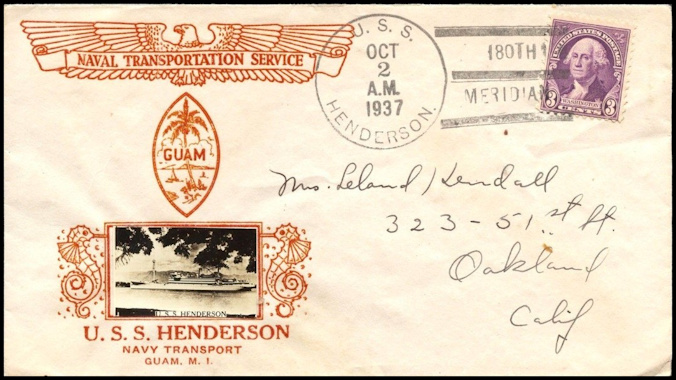 NAVAL TRANSPORTATION SERVICE
GUAM
U.S.S. HENDERSON
U. S. S. HENDERSON
NAVY TRANSPORT
GUAM, M. I.
U. S. S.
OCT
2
A.M.
1937
HENDERSON.
180TH
MERIDIAN
UNITED STATES POSTAGE
WASHINGTON
3 CENTS 3
Mrs. Leland Kendall
323-51st St.
Oakland
Calif